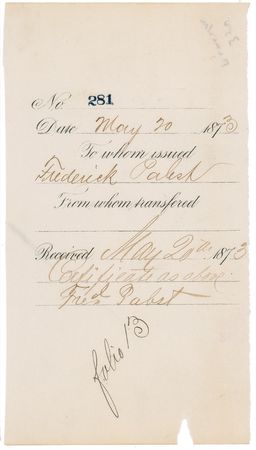 No. 281
Date May 20 1873
To whom issued
Frederick Pabst
From whom transferred
Received May 20th 1873
Certificate as above.
Fred Pabst
folio 13